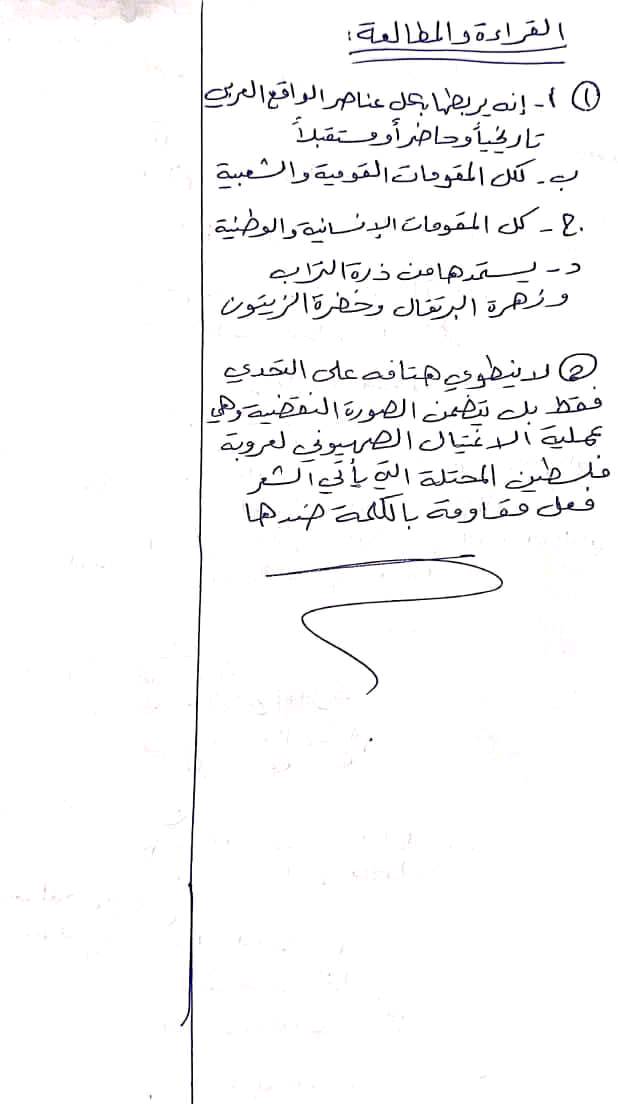 القراءة والمطالعة:
① أ- إنه يربطها بكل عناصر الواقع العربي
تاريخياً وحاضراً ومستقبلاً
ب- كل المقومات القومية والشعبية
ج- كل المقومات الإنسانية والوطنية
د- يستمدها من ذرة التراب
وزهرة البرتقال وخضرة الزيتون
② لا ينطوي هتافه على التحدي
فقط بل يتضمن الصورة النقضية وهي
عملية الاغتيال الصهيوني لعروبة
فلسطين المحتلة التي يأتي الشعر
فعل مقاومة بالكلمة ضدها